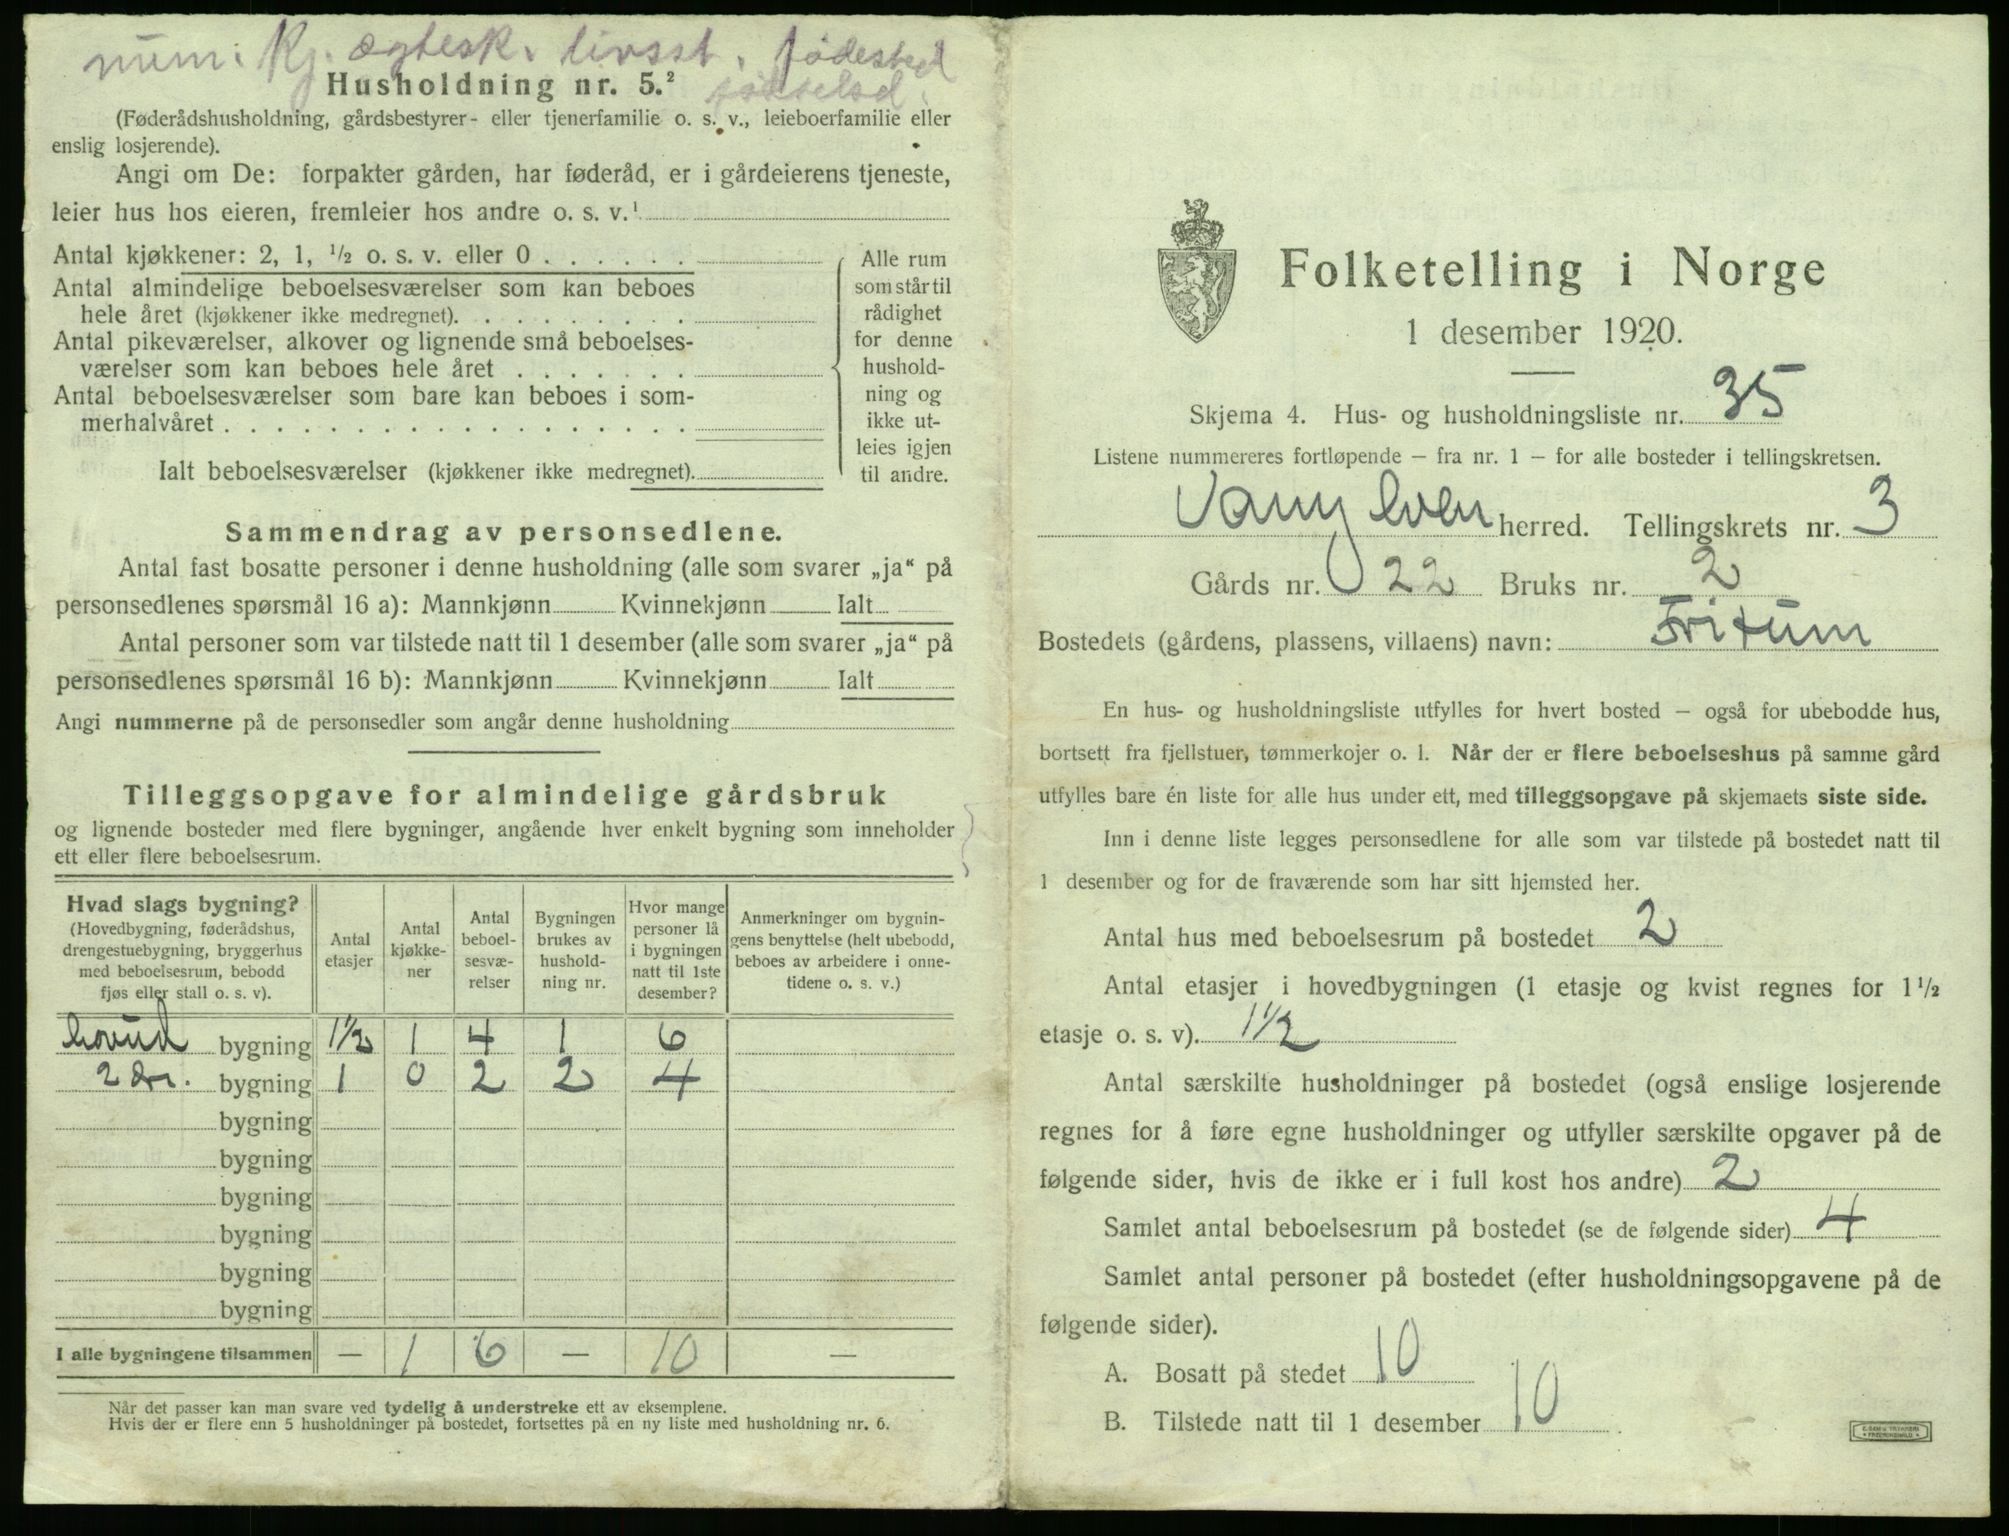 num. Kj. ægtesk. livsst. fødested
fødselsd.
Husholdning nr. 5.²
(Føderådshusholdning, gårdsbestyrer- eller tjenerfamilie o. s. v., leieboerfamilie eller
enslig losjerende).
Angi om De: forpakter gården, har føderåd, er i gårdeierens tjeneste,
leier hus hos eieren, fremleier hos andre o. s. v.¹
Antal kjøkkener: 2, 1, ½ o. s. v. eller 0 . . . . . .
Antal almindelige beboelsesværelser som kan beboes
hele året (kjøkkener ikke medregnet). . . . . . . . .
Antal pikeværelser, alkover og lignende små beboelses-
værelser som kan beboes hele året . . . . . . .
Antal beboelsesværelser som bare kan beboes i som-
merhalvåret . . . . . . . . . . . . . . . . . .
Ialt beboelsesværelser (kjøkkener ikke medregnet).
Alle rum
som står til
rådighet
for denne
hushold-
ning og
ikke ut-
leies igjen
til andre.
Sammendrag av personsedlene.
Antal fast bosatte personer i denne husholdning (alle som svarer „ja“ på
personsedlenes spørsmål 16 a): Mannkjønn Kvinnekjønn Ialt
Antal personer som var tilstede natt til 1 desember (alle som svarer „ja“ på
personsedlenes spørsmål 16 b): Mannkjønn Kvinnekjønn Ialt
Angi nummerne på de personsedler som angår denne husholdning
Tilleggsopgave for almindelige gårdsbruk
og lignende bosteder med flere bygninger, angående hver enkelt bygning som inneholder
ett eller flere beboelsesrum.
Hvad slags bygning?
(Hovedbygning, føderådshus,
drengestuebygning, bryggerhus
med beboelsesrum, bebodd
fjøs eller stall o. s. v).
Antal
etasjer
Antal
kjøkke-
ner
Antal
beboel-
sesvæ-
relser
Bygningen
brukes av
hushold-
ning nr.
Hvor mange
personer lå
i bygningen
natt til 1ste
desember?
Anmerkninger om bygnin-
gens benyttelse (helt ubebodd,
beboes av arbeidere i onne-
tidene o. s. v.)
hovud bygning 1½ 1 4 1 6
2 bygning 1 0 2 2 4
bygning
bygning
bygning
bygning
bygning
bygning
I alle bygningene tilsammen — 1 6 — 10 —
Når det passer kan man svare ved tydelig å understreke ett av eksemplene.
Hvis der er flere enn 5 husholdninger på bostedet, fortsettes på en ny liste med husholdning nr. 6.
Folketelling i Norge
1 desember 1920.
Skjema 4. Hus- og husholdningsliste nr. 35
Listene nummereres fortløpende — fra nr. 1 — for alle bosteder i tellingskretsen.
Vanylven herred. Tellingskrets nr. 3
Gårds nr. 22 Bruks nr. 2
Bostedets (gårdens, plassens, villaens) navn: Fritun
En hus- og husholdningsliste utfylles for hvert bosted — også for ubebodde hus,
bortsett fra fjellstuer, tømmerkojer o. l. Når der er flere beboelseshus på samme gård
utfylles bare én liste for alle hus under ett, med tilleggsopgave på skjemaets siste side.
Inn i denne liste legges personsedlene for alle som var tilstede på bostedet natt til
1 desember og for de fraværende som har sitt hjemsted her.
Antal hus med beboelsesrum på bostedet 2
Antal etasjer i hovedbygningen (1 etasje og kvist regnes for 1½
etasje o. s. v). 1½
Antal særskilte husholdninger på bostedet (også enslige losjerende
regnes for å føre egne husholdninger og utfyller særskilte opgaver på de
følgende sider, hvis de ikke er i full kost hos andre) 2
Samlet antal beboelsesrum på bostedet (se de følgende sider) 4
Samlet antal personer på bostedet (efter husholdningsopgavene på de
følgende sider).
A. Bosatt på stedet 10
B. Tilstede natt til 1 desember 10